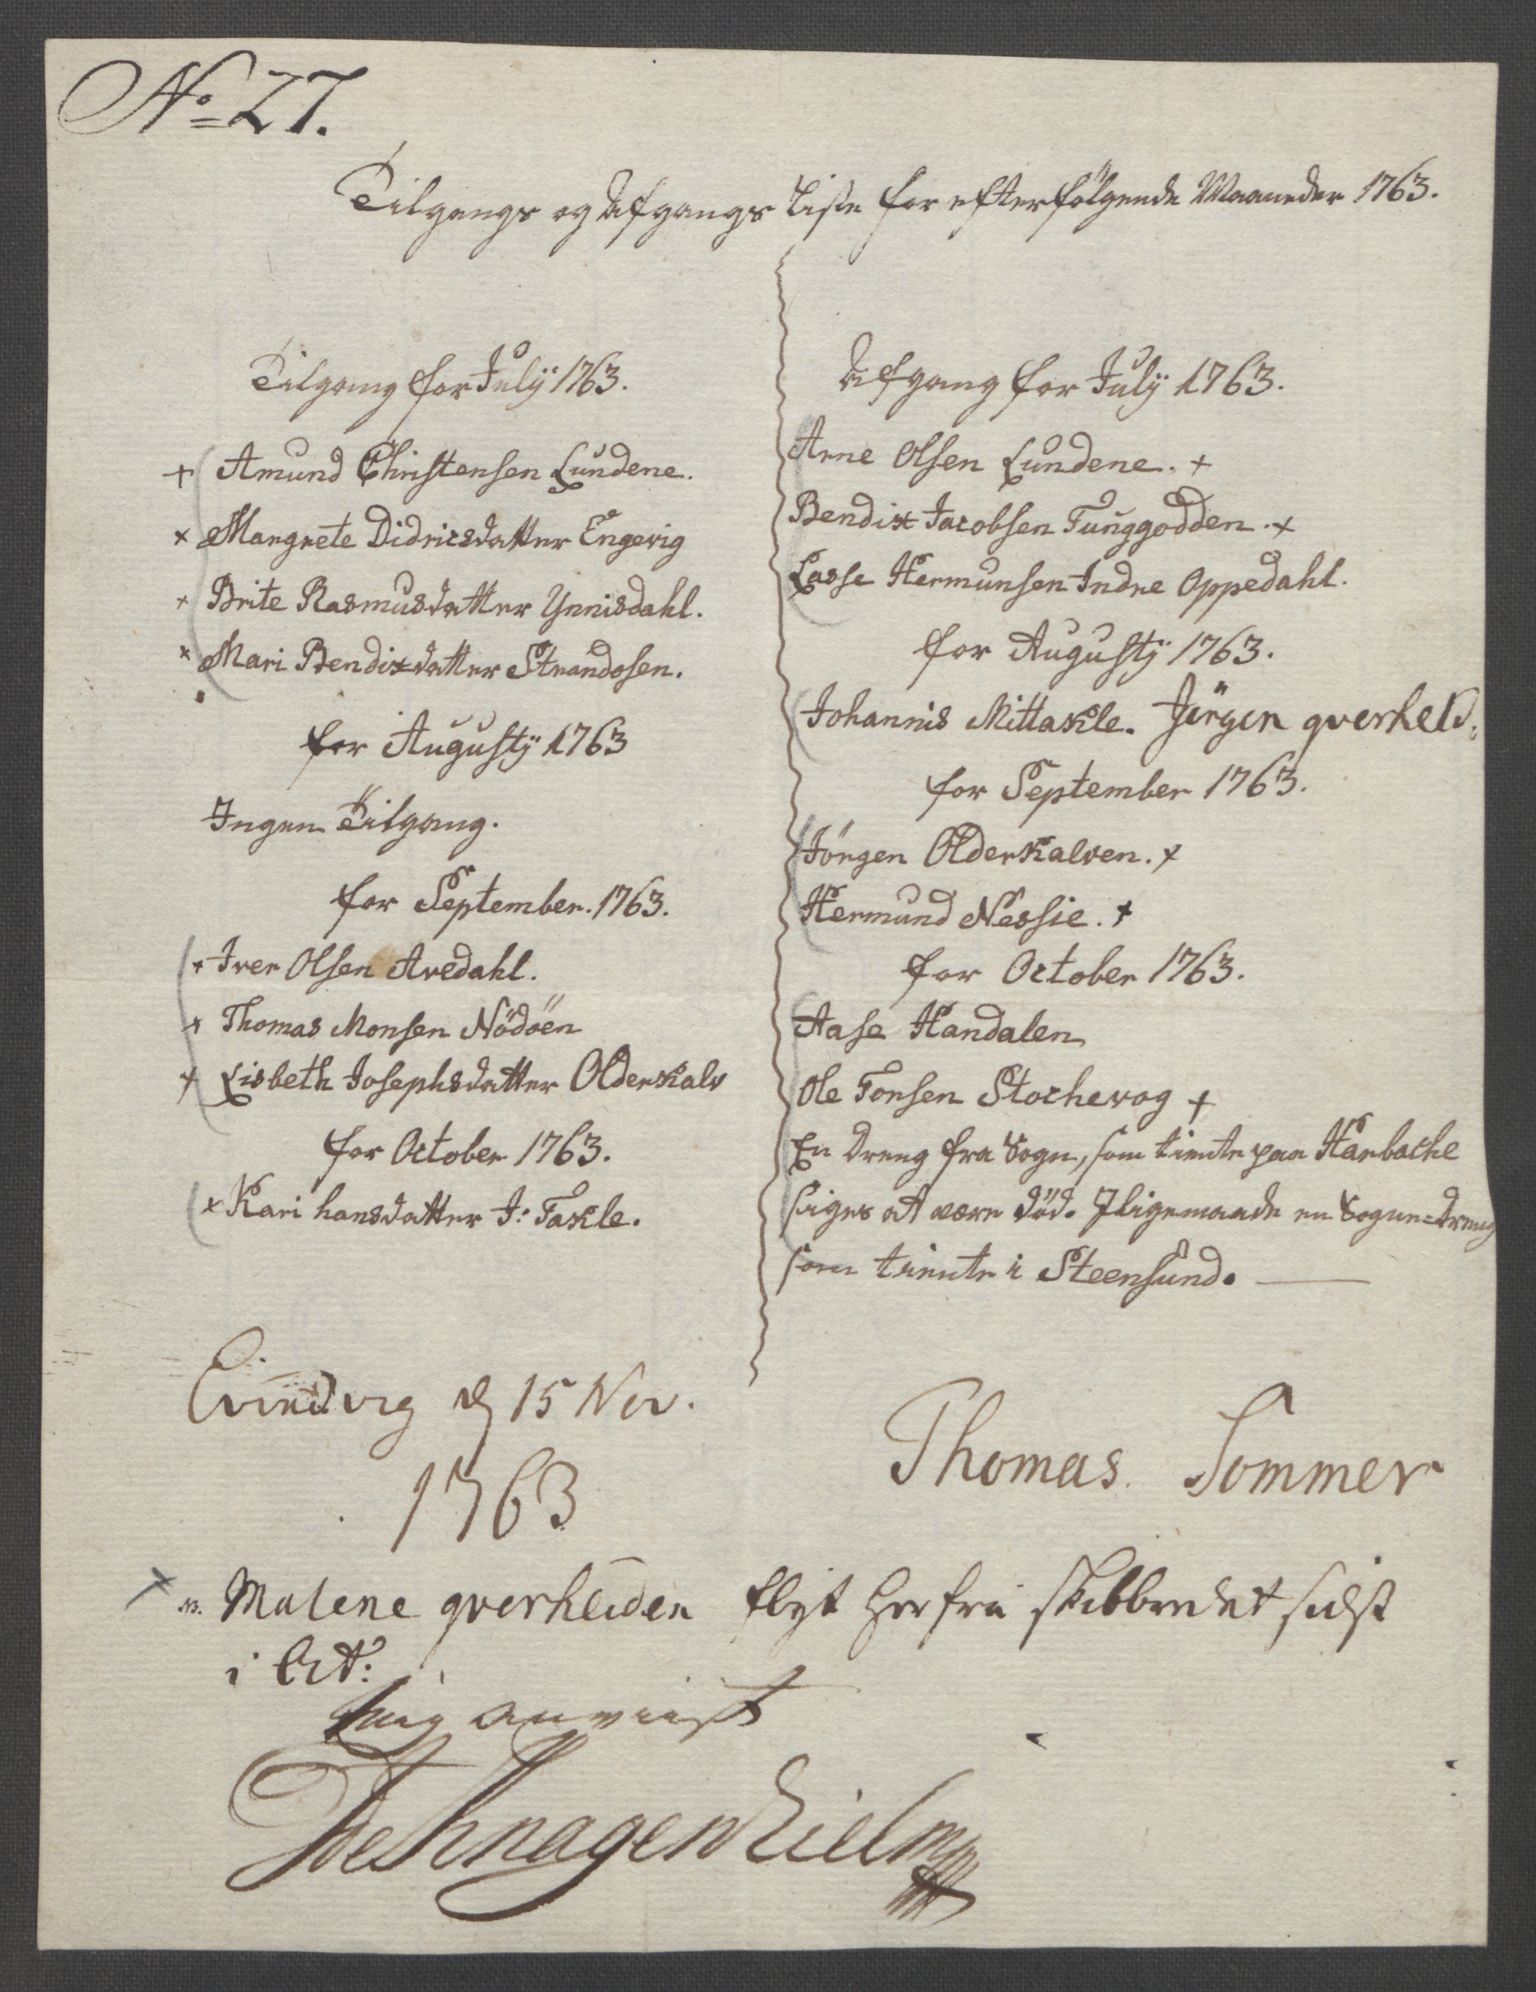 No 27.
Tilgangs og Afgangs Liste for efterfölgende Maaneder 1763.
Tilgang for Julÿ 1763.
+ Amund Christensen Lundene.
× Margrete Didricsdatter Engevig
× Brite Rasmusdatter Ynnisdahl.
× Mari Bendixdatter Strandosen.
for Augustÿ 1763
Ingen Tilgang.
for September. 1763.
+ Iver Olsen Avedahl.
× Thomas Monsen Nödöen
× Lisbeth Josephsdatter Olderkalv
for October 1763.
× Kari hansdatter I: Takle.
Afgang for Julÿ 1763.
Arne Olsen Lundene. +
Bendix Jacobsen Tunggodden. ×
Lasse Hermunsen Indre Oppedahl.
for Augustÿ 1763.
Johannis Mittakle. Jörgen qverheid.
for September 1763.
Jörgen Olderkalven. ×
Hermund Nessie. +
for October 1763.
Aase Handalen
Ole Tonsen Stochevog +
En dreng fra Sogn, som tiente paa Hanbache
siges at være död. Iligemaade en Sogne-Dreng
som tiente i Steensund.
Evindvig d 15 Nov.
1763
Thomas Sommer
× NB. Malene qverheiden flyt her fra Skibbredet sidst
i Oct:
mig anviist
De Knagenhielm